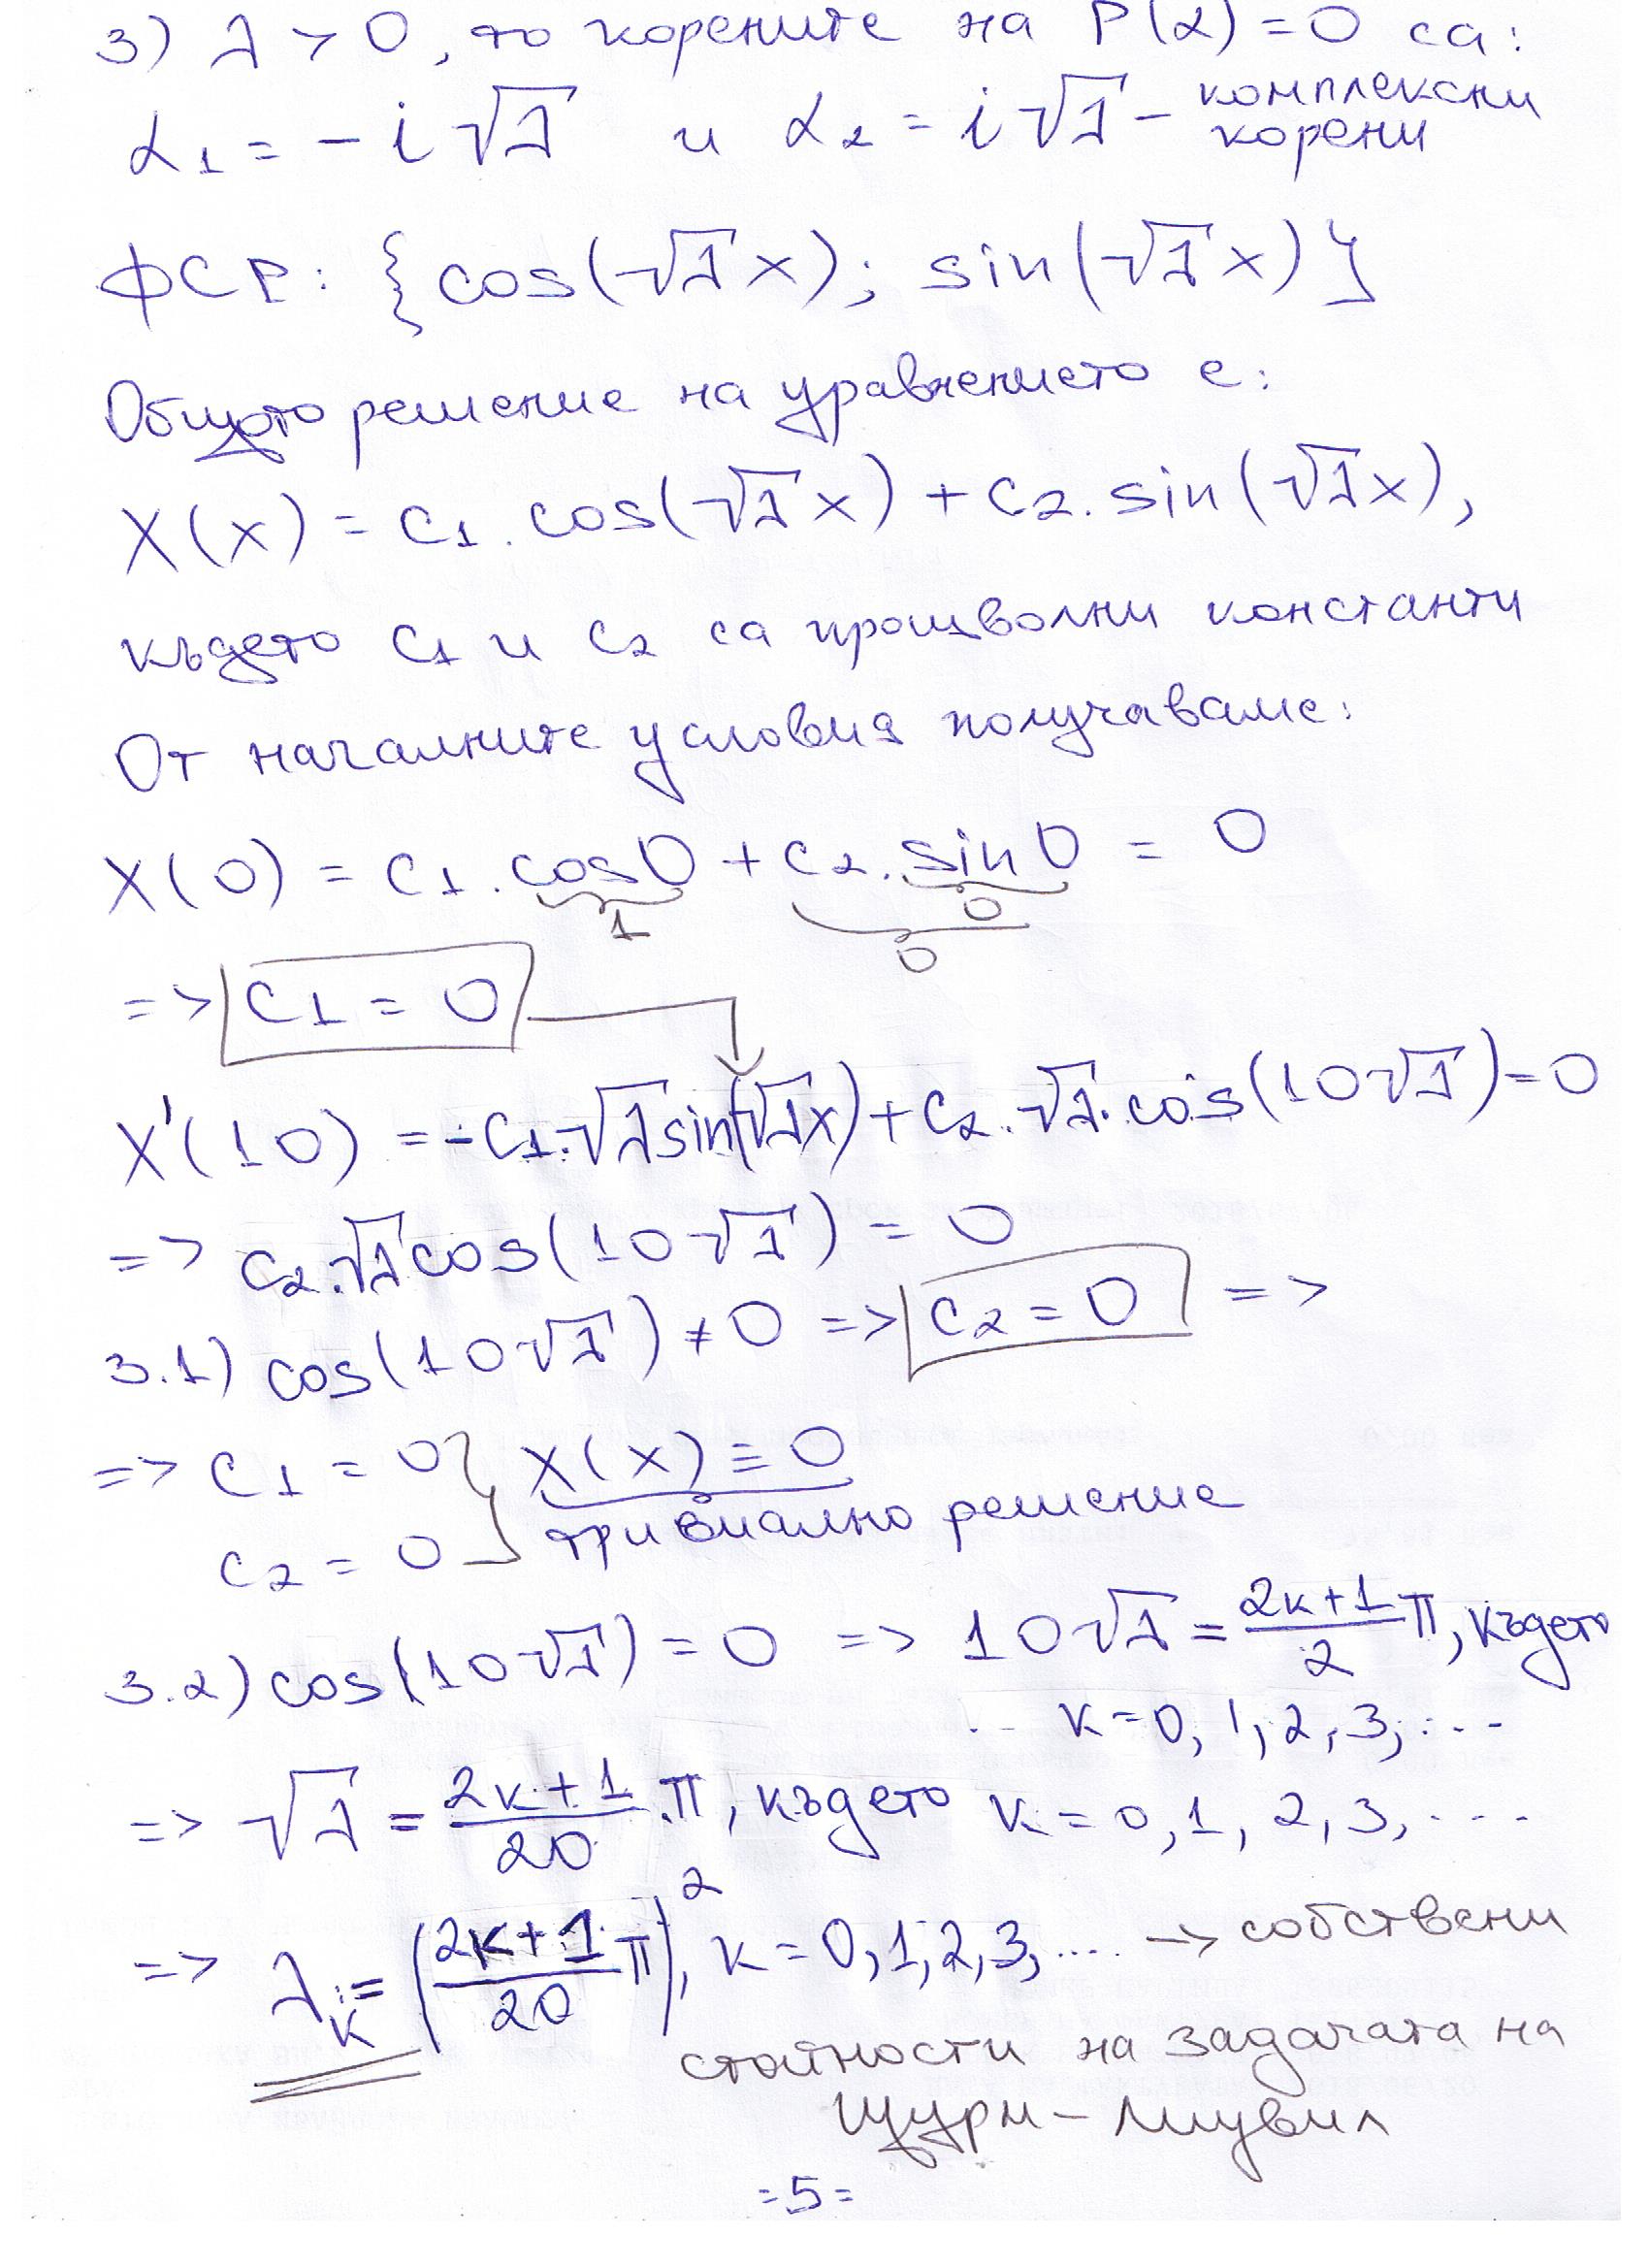 3) λ > 0, то корените на P(α) = 0 са:
α₁ = - i √λ и α₂ = i √λ - комплексни корени
ФСР: { cos(√λ x); sin(√λ x) }
Общото решение на уравнението е:
X(x) = c₁ . cos(√λ x) + c₂ . sin(√λ x),
където c₁ и c₂ са произволни константи
От началните условия получаваме:
X(0) = c₁ . cos0 + c₂ . sin0 = 0
1 0
0
=> c₁ = 0
X'(10) = -c₁.√λ sin(√λ x) + c₂.√λ.cos(10√λ) = 0
=> c₂.√λ cos(10√λ) = 0
3.1) cos(10√λ) ≠ 0 => c₂ = 0 =>
=> c₁ = 0 } X(x) ≡ 0
c₂ = 0 тривиално решение
3.2) cos(10√λ) = 0 => 10√λ = (2k+1)/2 π, където
k = 0, 1, 2, 3, ...
=> √λ = (2k+1)/20 . π, където k = 0, 1, 2, 3, ....
=> λₖ = ((2k+1)/20 π)², k = 0, 1, 2, 3, .... → собствени
стойности на задачата на
Щурм - Лиувил
= 5 =